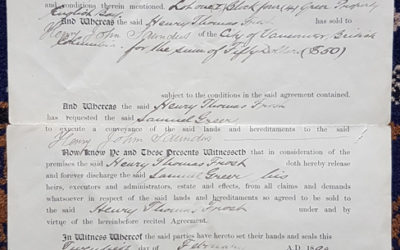 and conditions therein mentioned. Lot one (1) Block four (4) Greer Property
English Bay
And Whereas the said Henry Thomas Frost has sold to
Henry John Saunders of the City of Vancouver, British
Columbia for the sum of Fifty Dollars ($50)
subject to the conditions in the said agreement contained.
And Whereas the said Henry Thomas Frost
has requested the said Samuel Greer
to execute a conveyance of the said lands and hereditaments to the said
Henry John Saunders
Now Know Ye and These Presents Witnesseth that in consideration of
the premises the said Henry Thomas Frost doth hereby release
and forever discharge the said Samuel Greer his
heirs, executors and administrators, estate and effects, from all claims and demands
whatsoever in respect of the said lands and hereditaments so agreed to be sold to
the said Henry Thomas Frost under and by
virtue of the hereinbefore recited Agreement.
In Witness Whereof the said parties have set their hands and seals this
day of February A.D. 189